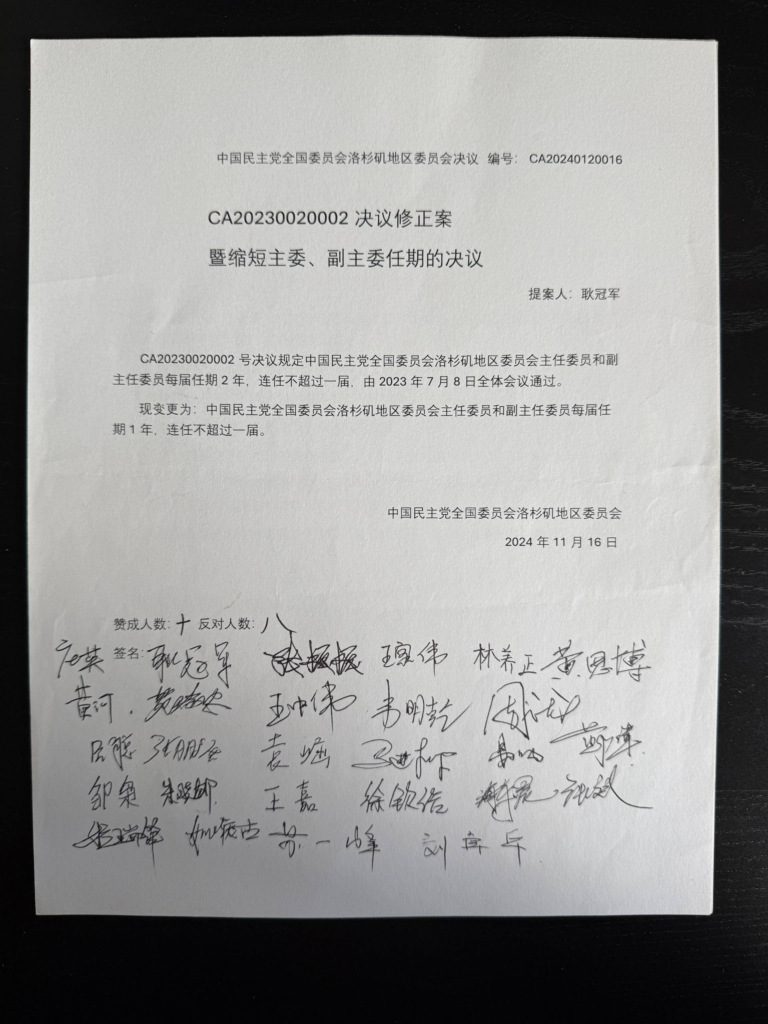 中国民主党全国委员会洛杉矶地区委员会决议 编号： CA20240120016
CA20230020002 决议修正案
暨缩短主委、副主委任期的决议
提案人：耿冠军
CA20230020002 号决议规定中国民主党全国委员会洛杉矶地区委员会主任委员和副
主任委员每届任期 2 年，连任不超过一届，由 2023 年 7 月 8 日全体会议通过。
现变更为：中国民主党全国委员会洛杉矶地区委员会主任委员和副主任委员每届任
期 1 年，连任不超过一届。
中国民主党全国委员会洛杉矶地区委员会
2024 年 11 月 16 日
赞成人数：十 反对人数：八
签名：耿冠军 林养正 黄思博
黄河 王中伟 韦明乾
吕聪 袁崡
邹巢 王嘉 徐钦浩
苏一峰